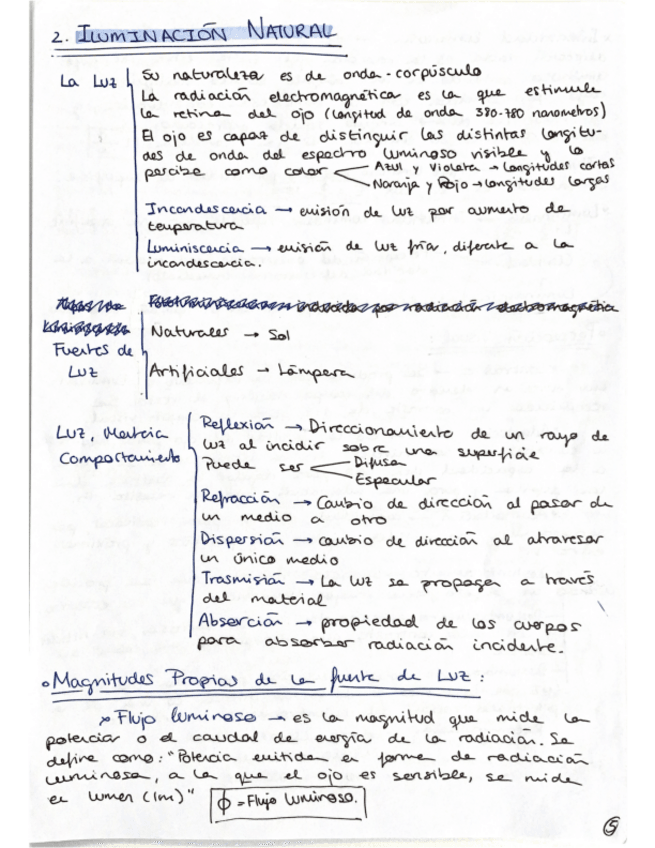 2. ILUMINACIÓN NATURAL
La Luz
Su naturaleza es de onda-corpúsculo
La radiación electromagnética es la que estimule
la retina del ojo (longitud de onda 380-780 nanometros)
El ojo es capaz de distinguir las distintas longitu-
des de onda del espectro luminoso visible y lo
percibe como color
Azul y Violeta → longitudes cortas
Naranja y Rojo → longitudes largas
Incandescencia → emisión de luz por aumento de
temperatura
Luminiscencia → emisión de luz fría, diferente a la
incandescencia.
Fuentes de
Luz
Naturales → Sol
Artificiales → Lámpara
Luz, Materia
Comportamiento
Reflexión → Direccionamiento de un rayo de
luz al incidir sobre una superficie
Puede ser
Difusa
Especular
Refracción → Cambio de dirección al pasar de
un medio a otro
Dispersión → cambio de dirección al atravesar
un único medio
Trasmisión → La luz se propaga a través
del material
Absorción → propiedad de los cuerpos
para absorber radiación incidente.
• Magnitudes Propias de la fuente de Luz:
Flujo luminoso → es la magnitud que mide la
potencia o el caudal de energía de la radiación. Se
define como: "Potencia emitida en forma de radiación
luminosa, a la que el ojo es sensible, se mide
en lumen (lm)"
ϕ = Flujo luminoso.
5